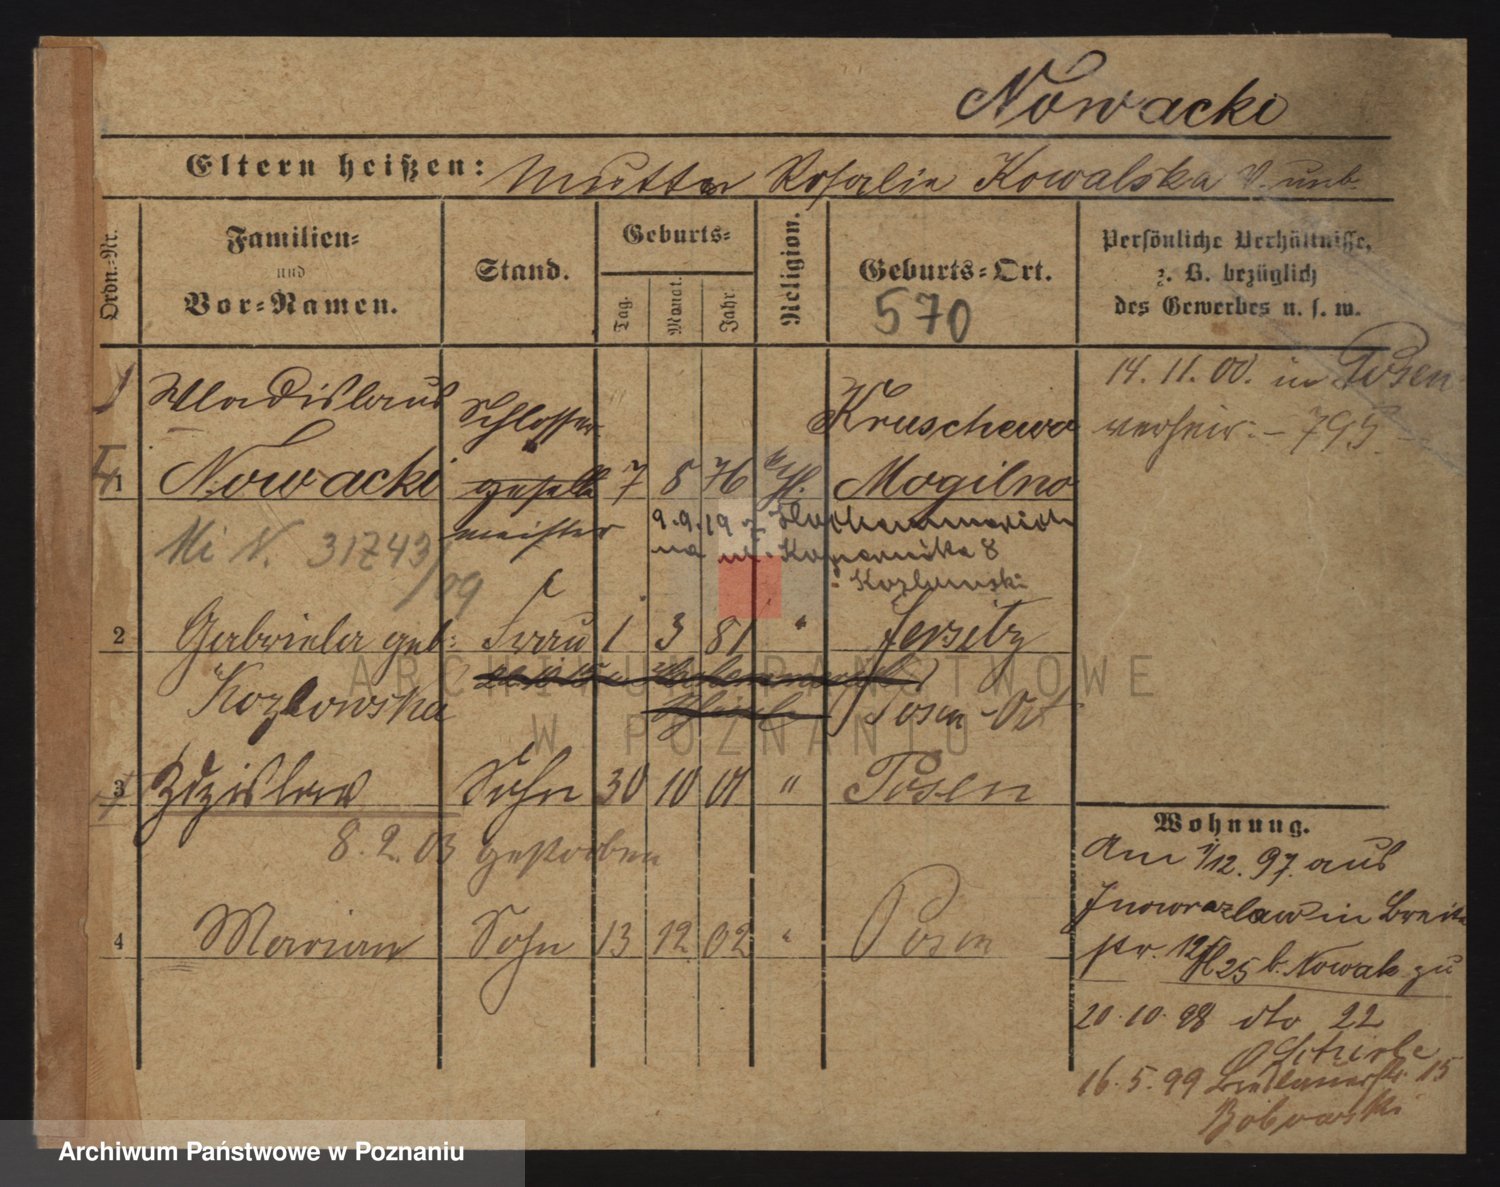 Nowacki
Eltern heißen: Mutter Rosalie Kowalska V. unb.
Ordn.-Nr.
Familien-
und
Vor-Namen.
Stand.
Geburts-
Tag.
Monat.
Jahr
Religion.
Geburts-Ort.
570
Persönliche Verhältnisse,
z. B. bezüglich
des Gewerbes u. s. w.
Wladislaus Schlosser- Kruschewo
1 Nowacki geselle 7 8 76 kth. Mogilno
meister
14. 11. 00. in Posen
verheir. - 795 -
Mi N. 31743/09
9.9.19 z
na ul. Kopernika 8
Kozlowski
2 Gabriela geb: Frau 1 3 81 " Jersitz
Kozlowska Posen-Ort
3 Zdzislaw Sohn 30 10 01 " Posen
8. 2. 03 gestorben
4 Marian Sohn 13 12 02 " Posen
Wohnung.
Am 1/12. 97. aus
Inowrazlaw in Breite
str. 12 25 b. Nowak zu
20. 10. 98 dto 22
16. 5. 99 15
Bobrowski
ARCHIWUM PAŃSTWOWE
W POZNANIU
Archiwum Państwowe w Poznaniu